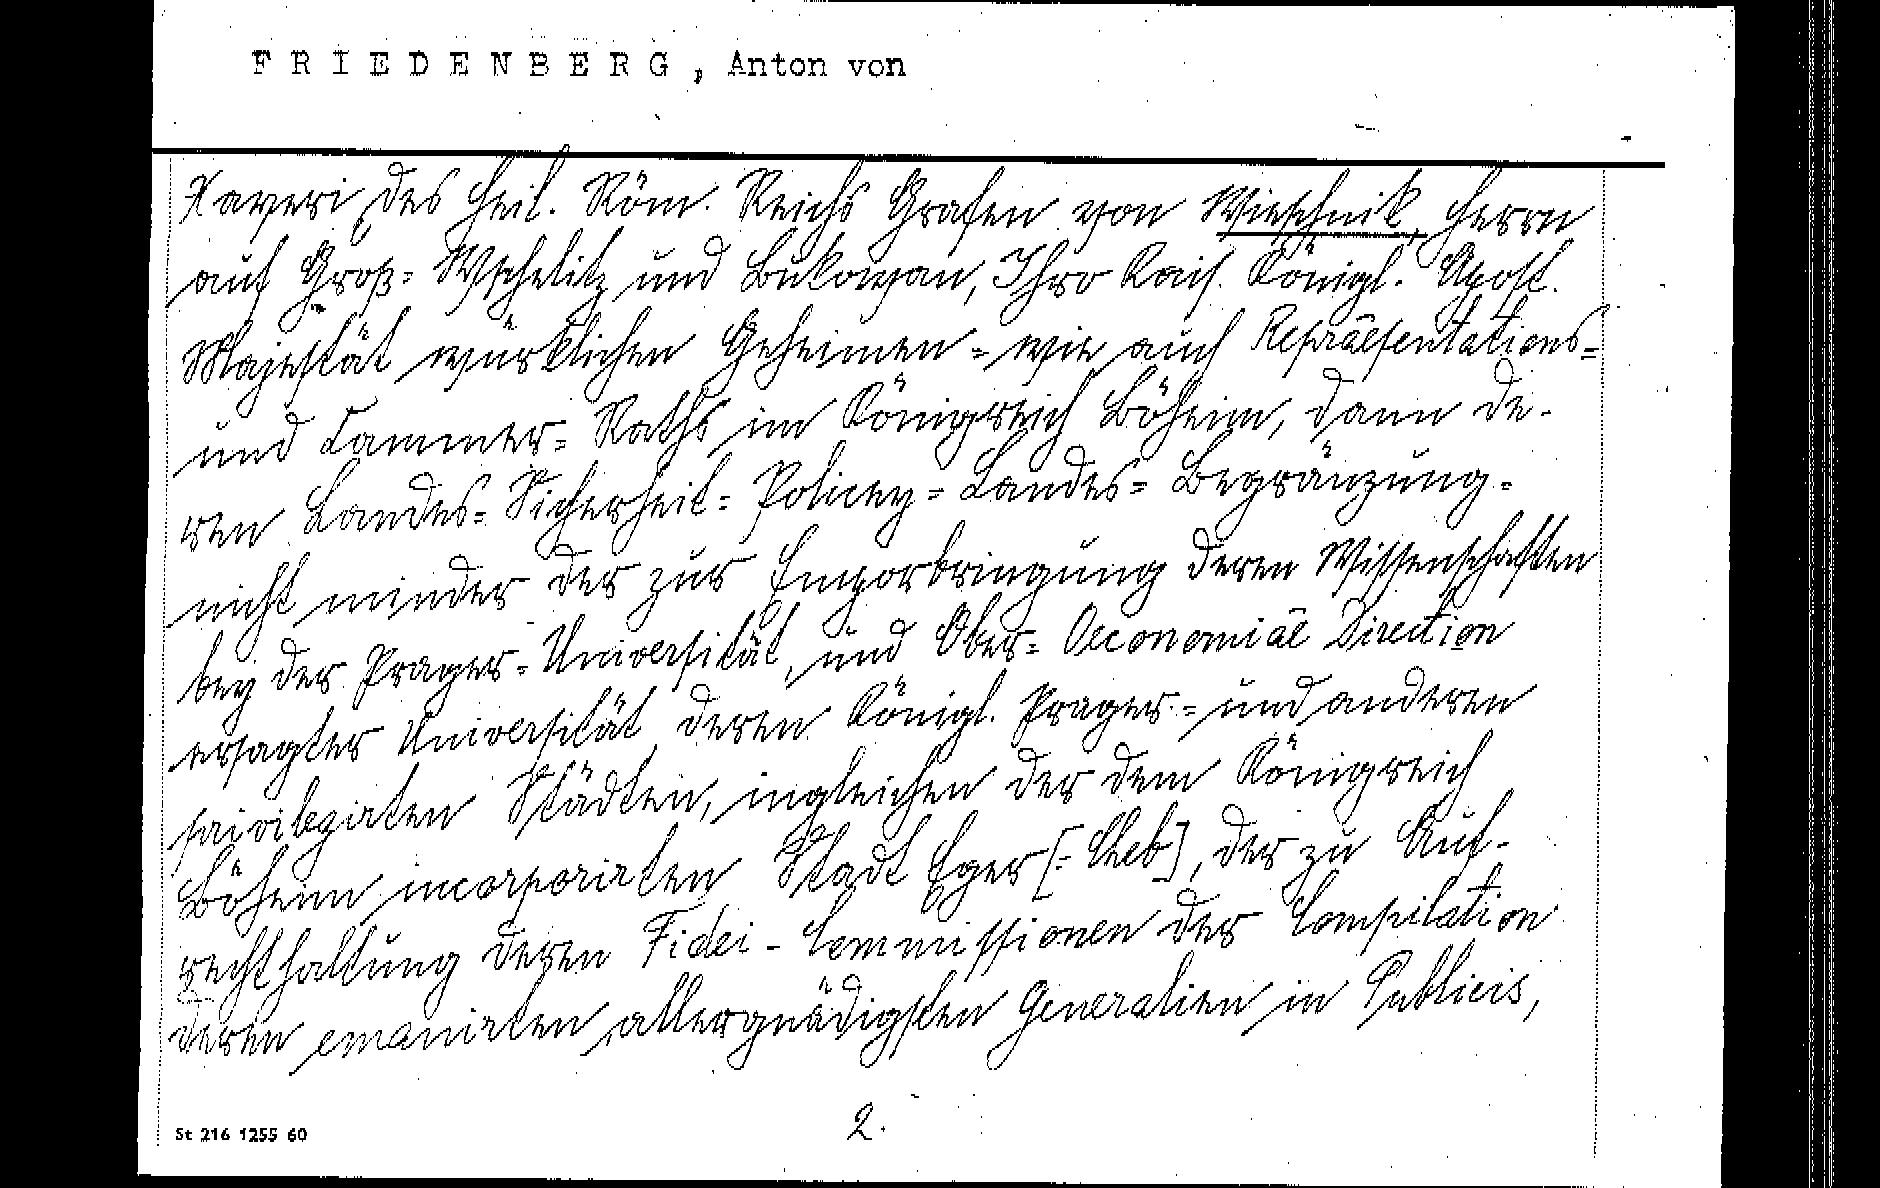 FRIEDENBERG, Anton von
Xaveri, des Heil. Röm. Reichs Grafen von Wieschnik, Herrn
auf Groß= Wschelitz und Bukowan, Ihro Kais. Königl. Apost.
Majestät würklichen Geheimen= wie auch Repräesentations=
und Cammer= Raths im Königreich Böheim, dann de-
ren Landes= Sicherheit= Policey= Landes= Begränzung-
nicht minder der zur Emporbringung deren Wissenschaften
bey der Prager= Universität, und Ober= Oeconomiäl Direction
ersagter Universität deren Königl. Prager= und anderen
privilegirten Städten, ingleichen der dem Königreich
Böheim incorporirten Stadt Eger [= Cheb], der zu Auf-
rechthaltung deren Fidei-Commissionen der Compilation
deren emanirten allergnädigsten Generalien in Publicis,
2.
St 216 1255 60